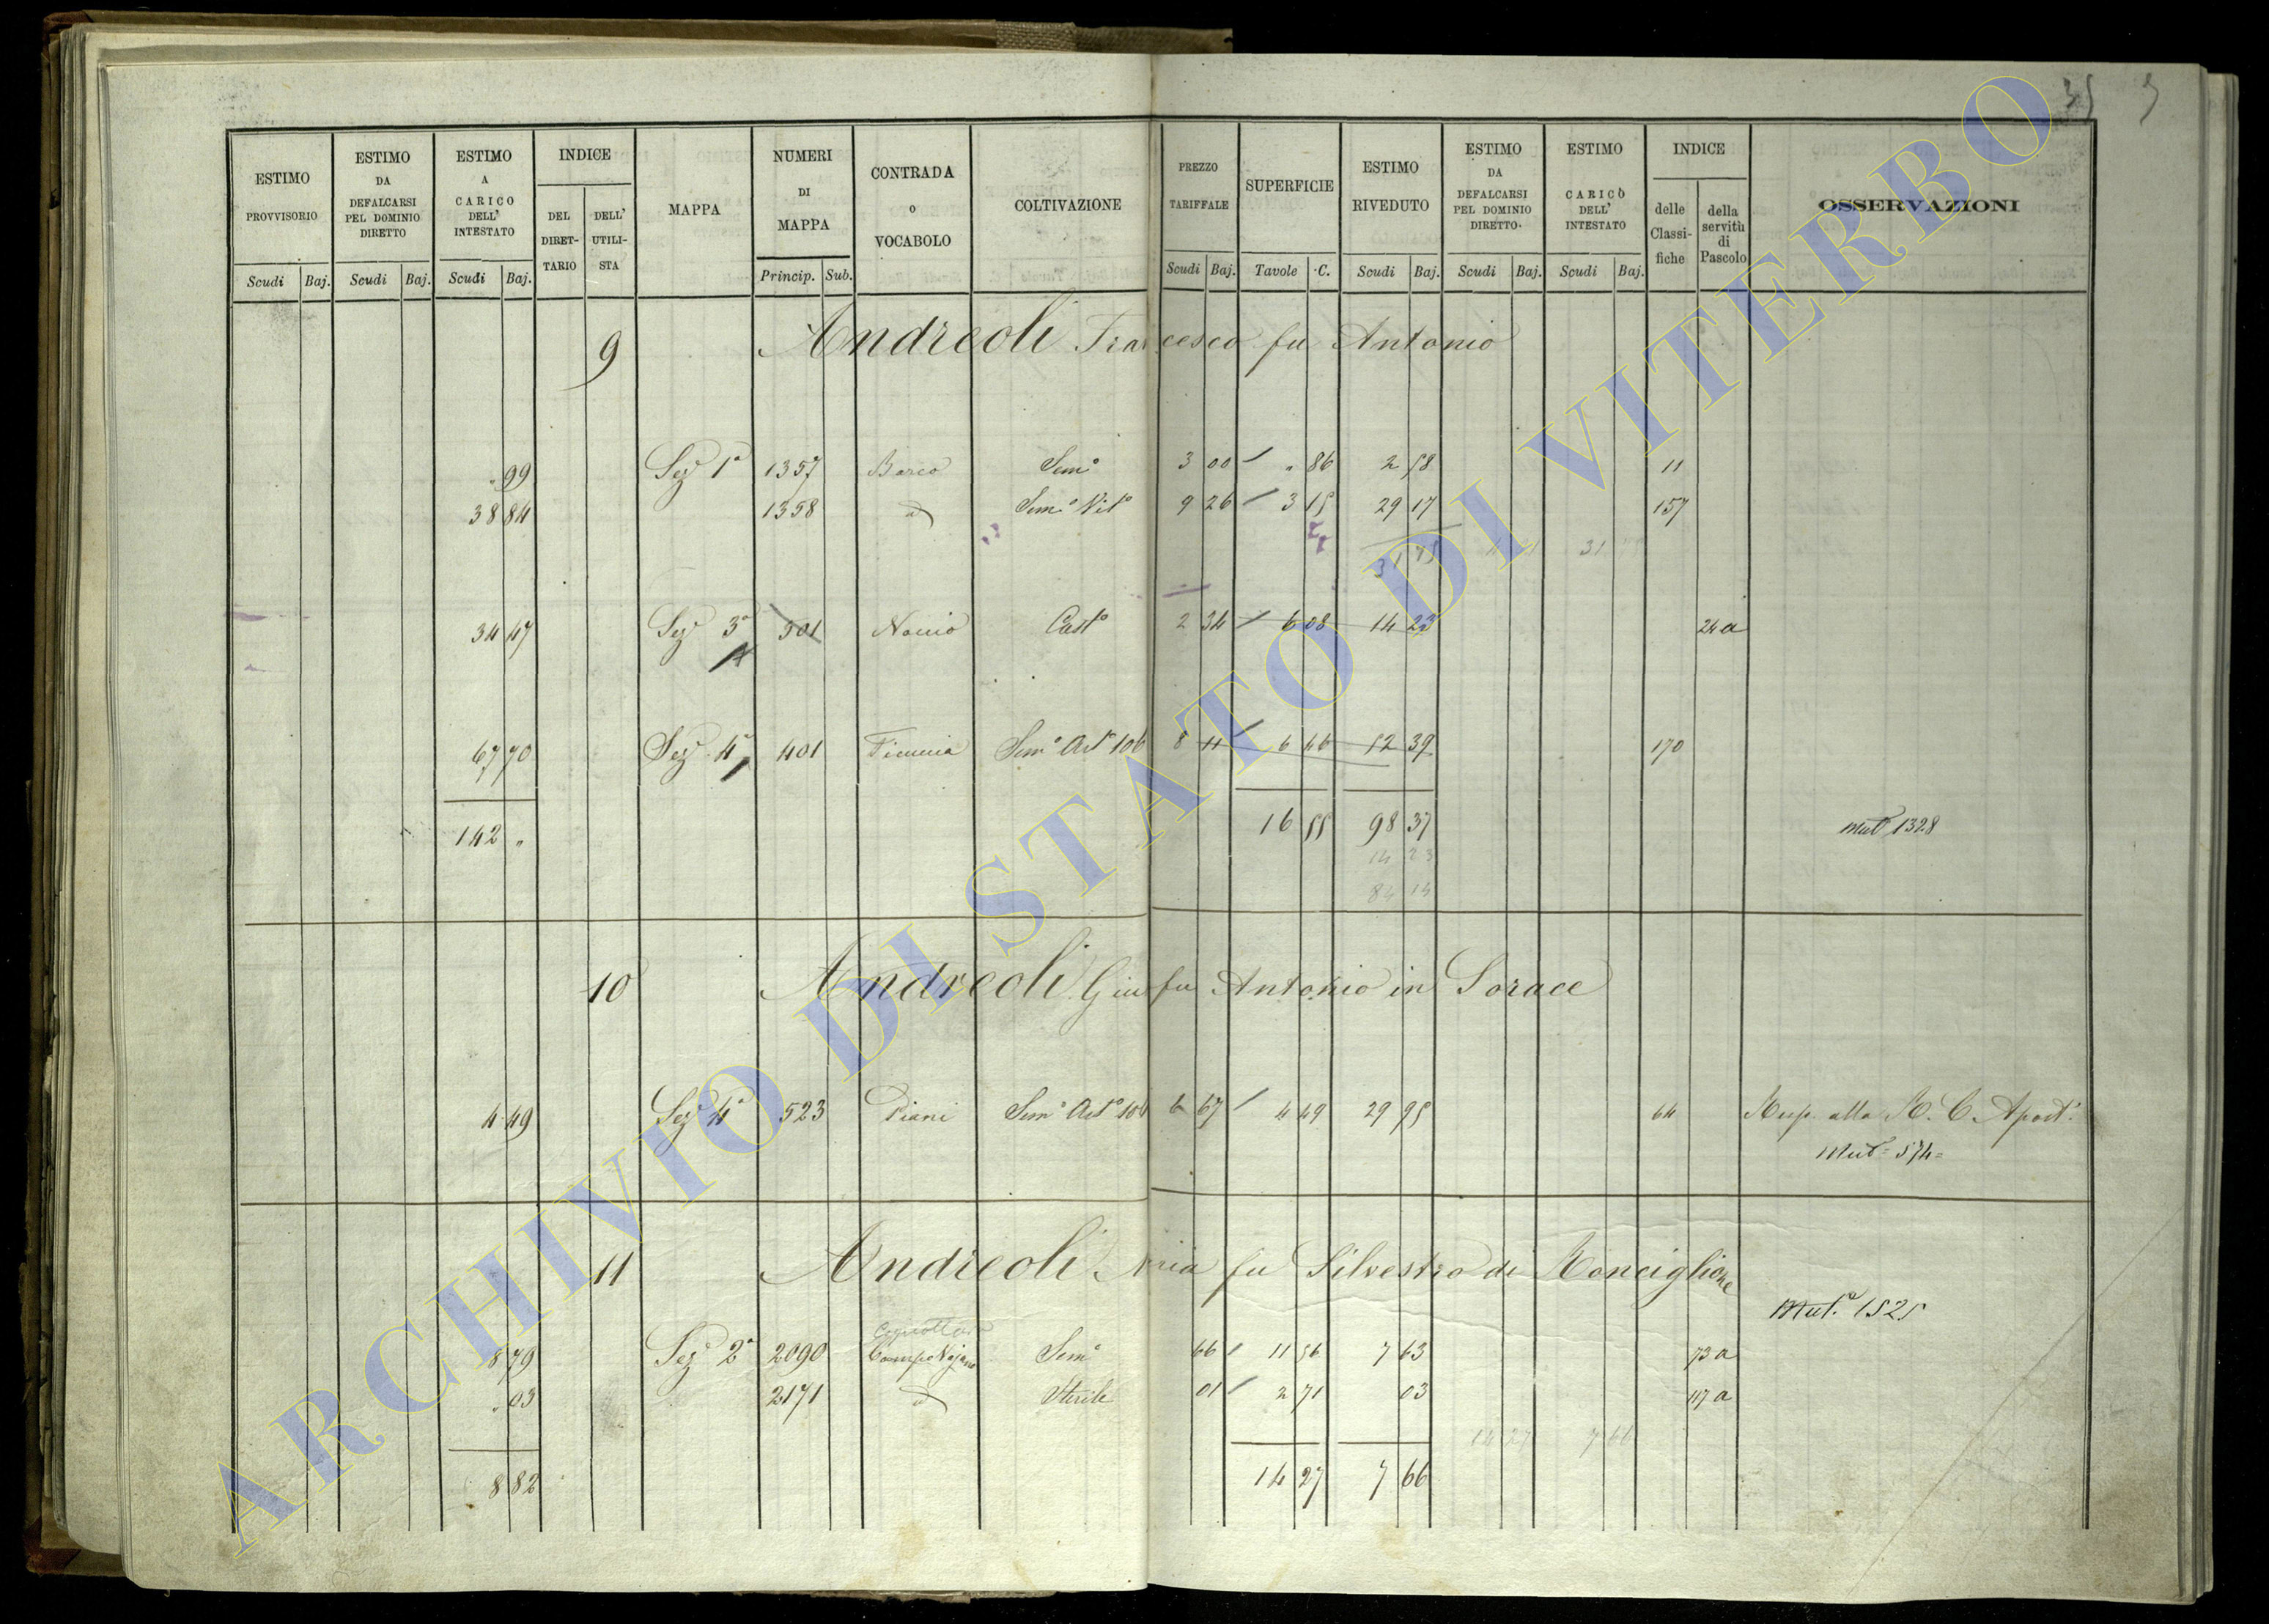 35 3
ESTIMO PROVVISORIO | ESTIMO DA DEFALCARSI PEL DOMINIO DIRETTO | ESTIMO A CARICO DELL' INTESTATO | INDICE | MAPPA | NUMERI DI MAPPA | CONTRADA O VOCABOLO | COLTIVAZIONE | PREZZO TARIFFALE | SUPERFICIE | ESTIMO RIVEDUTO | ESTIMO DA DEFALCARSI PEL DOMINIO DIRETTO. | ESTIMO CARICO DELL' INTESTATO | INDICE | OSSERVAZIONI
DEL DIRET-TARIO | DELL' UTILI-STA | delle Classi-fiche | della servitù di Pascolo
Scudi Baj. | Scudi Baj. | Scudi Baj. | Princip. Sub. | Scudi Baj. | Tavole C. | Scudi Baj. | Scudi Baj. | Scudi Baj.
9 Andreoli Francesco fu Antonio
" 99 Sez.e 1a 1357 Barco Sem.o 3 00 " 86 2 58 11
38 84 1358 id Sem.o Vit.o 9 26 3 15 29 17 157
31 75 31
34 47 Sez.e 3a 301 Cast.o 2 34 6 08 14 23 24 a
67 70 Sez.e 4a 401 Sem.o 8 11 6 46 52 39 170
142 " 16 55 98 37 Mut.e 1328
14 23
84 14
10 Andreoli Giu fu Antonio in Sorace
4 49 Sez.e 4a 523 Piani Sem.o 6 67 4 49 29 95 64 Risp. alla R. C. Apost.a
Mut.e 574
11 Andreoli fu Silvestro di Ronciglione
Mut.e 1525
8 79 Sez.e 2a 2090 Sem.o 66 11 56 7 63 73 a
" 03 2171 id Sterile 01 2 71 03 117 a
14 27 7 66
8 82 14 27 7 66
ARCHIVIO DI STATO DI VITERBO